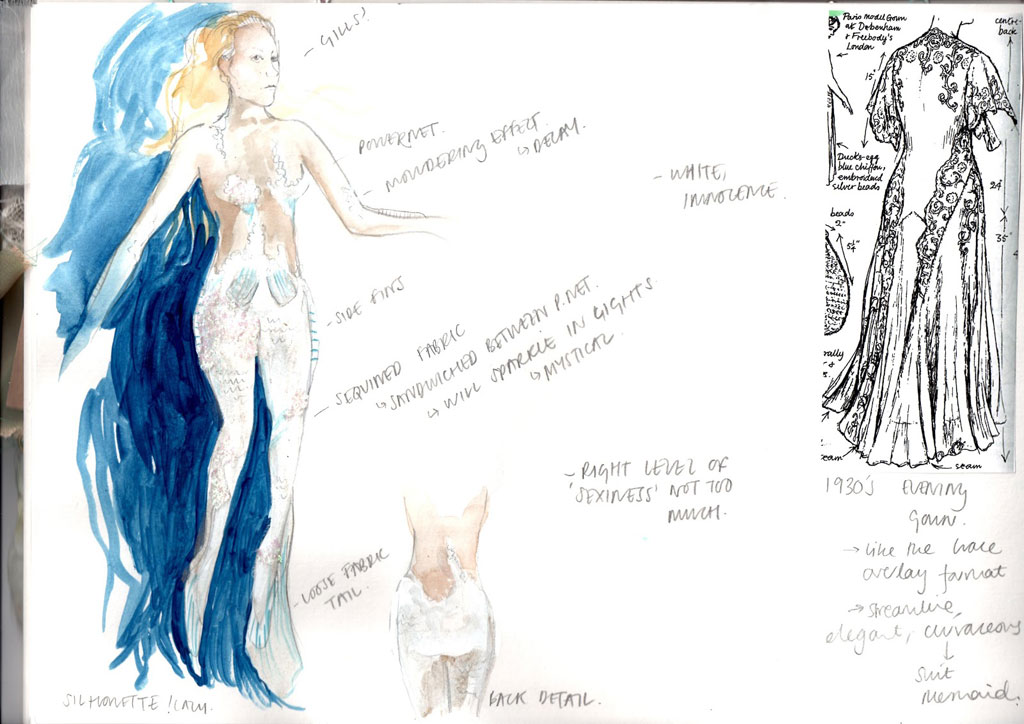 - GILLS!
- POWERNET.
- MOULDERING EFFECT.
↳ DECAY.
- WHITE,
INNOCENCE.
- SIDE FINS
- SEQUINED FABRIC
↳ SANDWICHED BETWEEN P.NET.
↳ WILL SPARKLE IN LIGHTS.
↳ MYSTICAL
- RIGHT LEVEL OF
'SEXINESS' NOT TOO
MUCH.
- LOOSE FABRIC
TAIL.
SILHOUETTE!
BACK DETAIL.
Paris model Gown
at Debenham
& Freebody's
London
centre-
back
15"
Duck's-egg
blue chiffon,
embroidered
silver beads
24"
35"
4
beads
2"
5¼"
rally
&
s.
seam
seam
1930's EVENING
Gown.
→ Like the lace
overlay format
→ streamline,
elegant, curvaceous
↓
suit
mermaid.